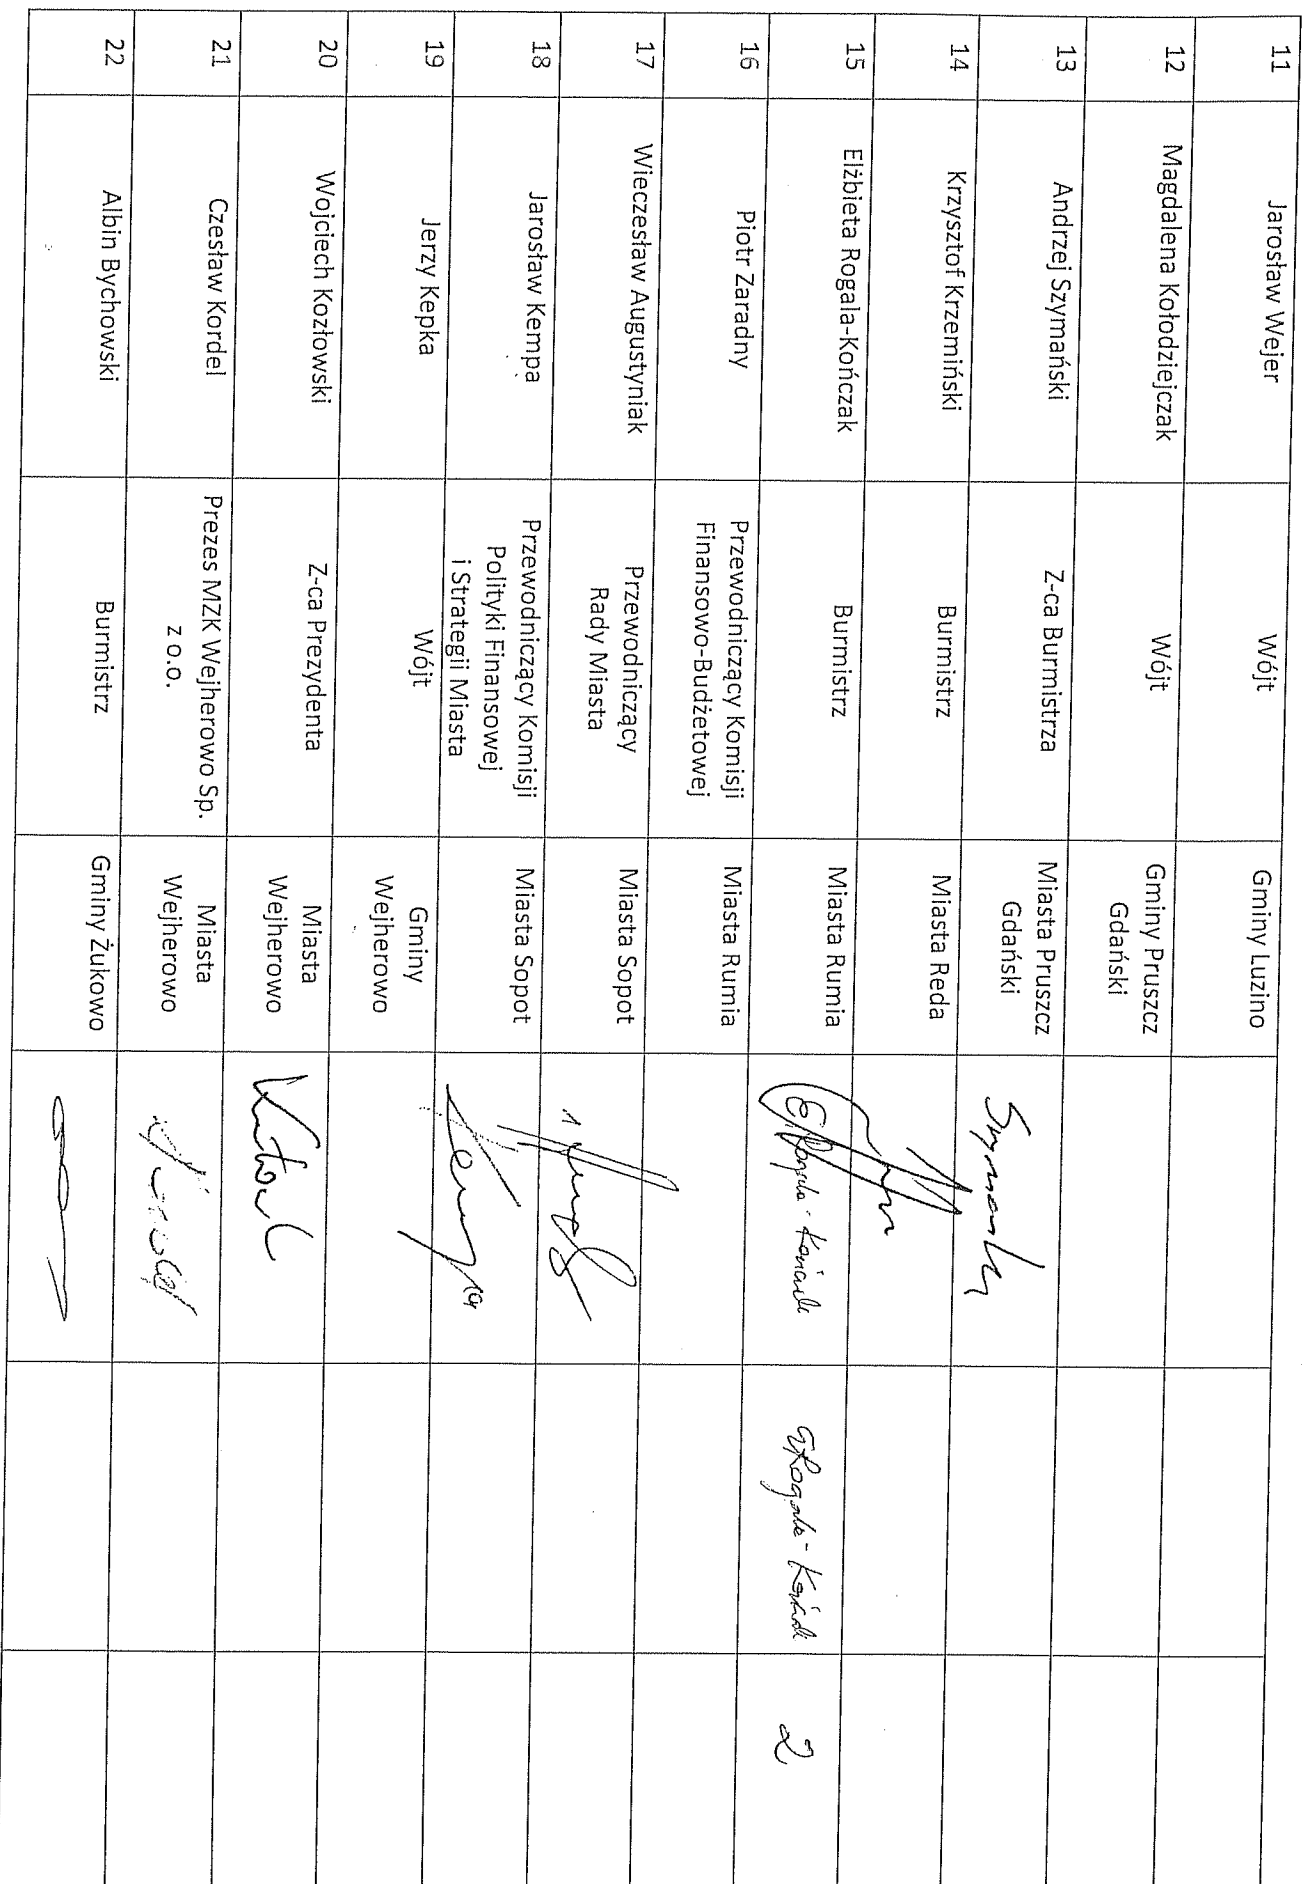 11 Jarosław Wejer Wójt Gminy Luzino
12 Magdalena Kołodziejczak Wójt Gminy Pruszcz
Gdański
13 Andrzej Szymański Z-ca Burmistrza Miasta Pruszcz
Gdański
14 Krzysztof Krzemiński Burmistrz Miasta Reda
15 Elżbieta Rogala-Kończak Burmistrz Miasta Rumia ERogala-Kończak 2
16 Piotr Zaradny Przewodniczący Komisji
Finansowo-Budżetowej Miasta Rumia
17 Wieczesław Augustyniak Przewodniczący
Rady Miasta Miasta Sopot
18 Jarosław Kempa Przewodniczący Komisji
Polityki Finansowej
i Strategii Miasta Miasta Sopot
19 Jerzy Kepka Wójt Gminy
Wejherowo
20 Wojciech Kozłowski Z-ca Prezydenta Miasta
Wejherowo
21 Czesław Kordel Prezes MZK Wejherowo Sp.
z o.o. Miasta
Wejherowo
22 Albin Bychowski Burmistrz Gminy Żukowo